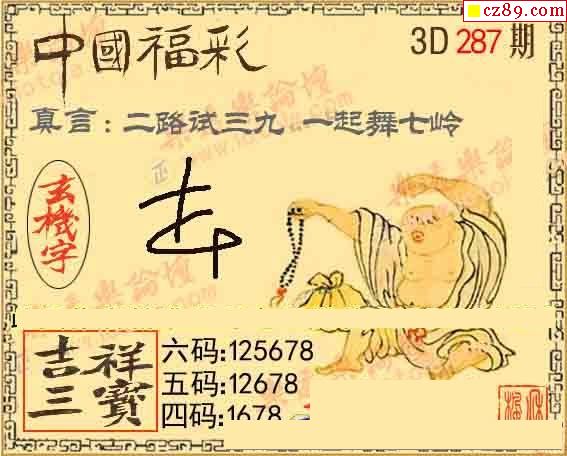 cz89.com
中國福彩
3D 287 期
真言：二路试三九 一起舞七岭
玄機字
吉祥三寶
六码:125678
五码:12678
四码:1678